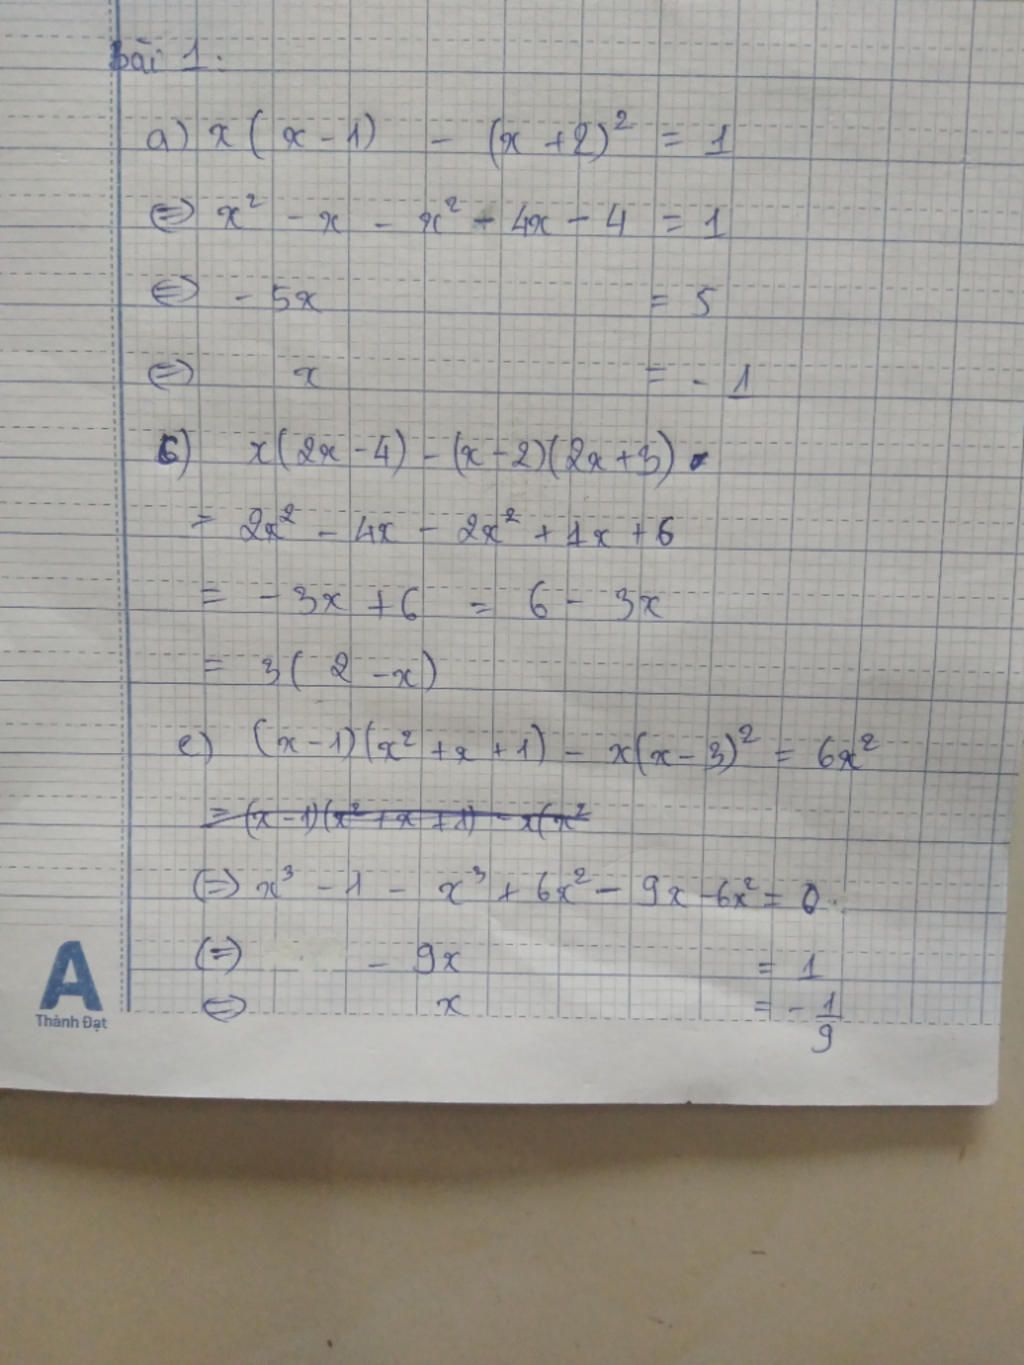 bài 1:
a) x(x-1) - (x+2)² = 1
⇔ x² - x - x² - 4x - 4 = 1
⇔ -5x = 5
⇔ x = -1
b) x(2x-4) - (x-2)(2x+3)
= 2x² - 4x - 2x² + 1x + 6
= -3x + 6 = 6 - 3x
= 3(2-x)
c) (x-1)(x²+x+1) - x(x-3)² = 6x²
= (x-1)(x²+x+1) - x(x²
⇔ x³ - 1 - x³ + 6x² - 9x - 6x² = 0
⇔ - 9x = 1
⇔ x = -1/9
A
Thành Đạt